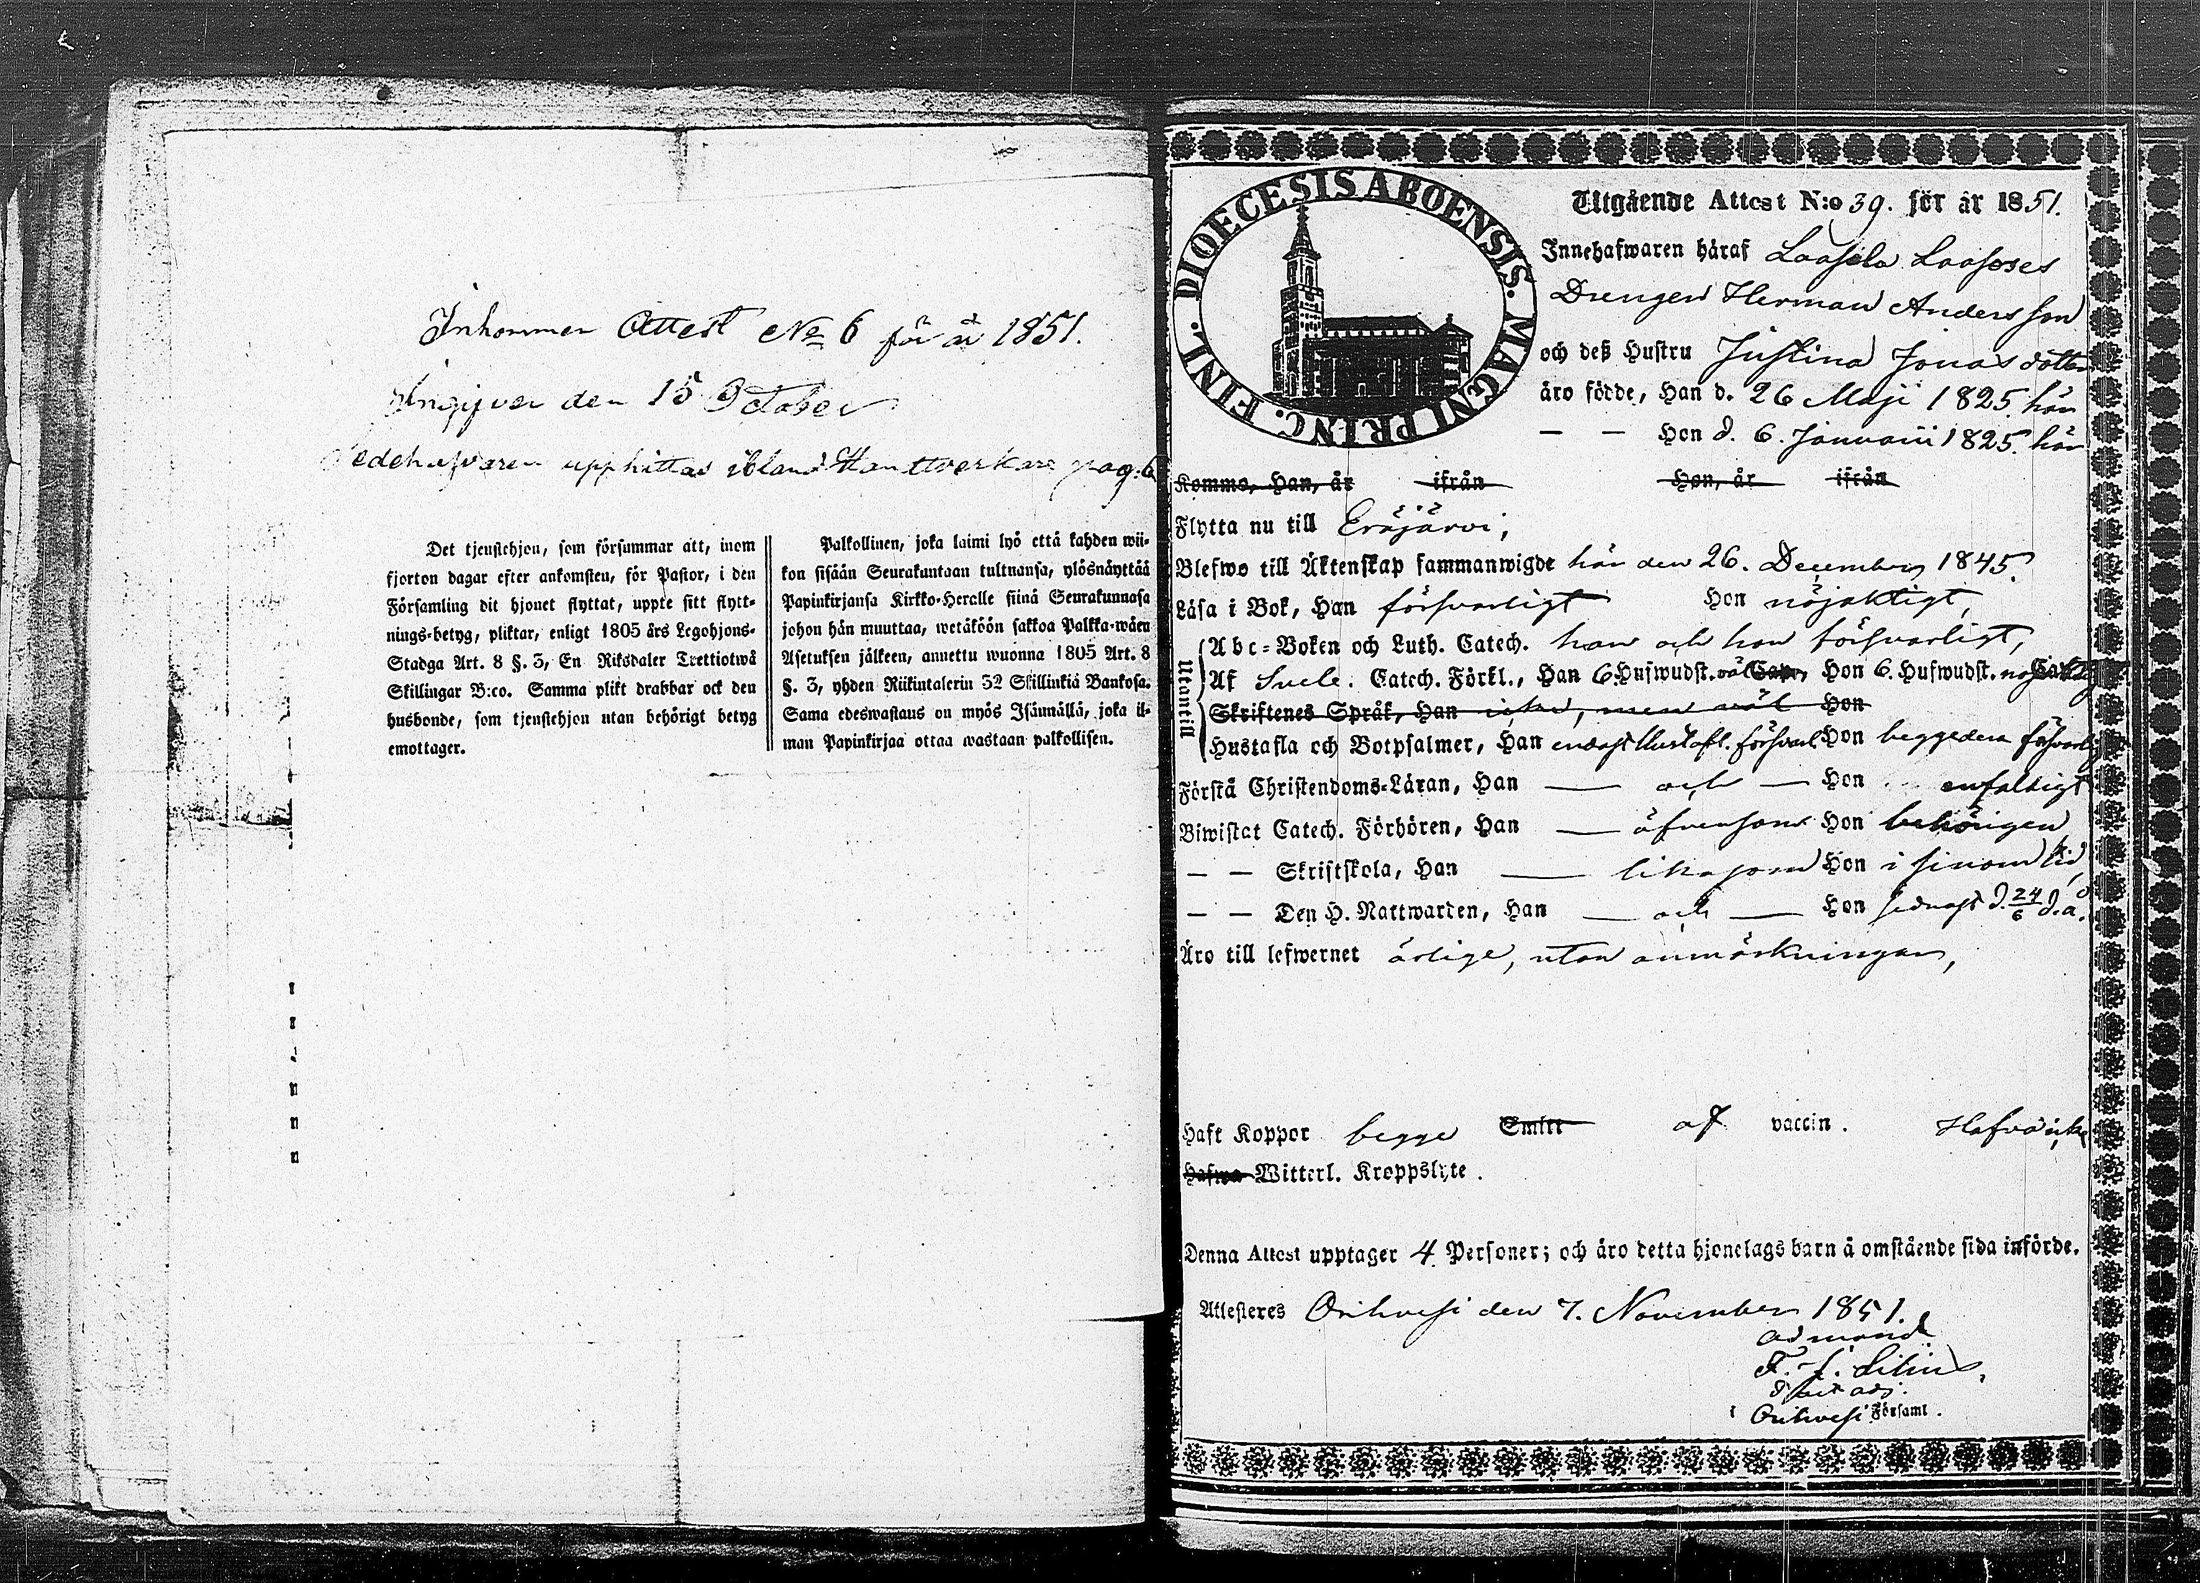 Inkommen Attest No 6 för år 1851.
Angifver den 15 October
upphittas ibland Handtverkare pag. 6
Det tjenstehjon, som försummar att, inom
fjorton dagar efter ankomsten, för Pastor, i den
Församling dit hjonet flyttat, uppte sitt flytt-
nings-betyg, pliktar, enligt 1805 års Legohjons-
Stadga Art. 8 §. 3, En Riksdaler Trettiotwå
Skillingar B:co. Samma plikt drabbar ock den
husbonde, som tjenstehjon utan behörigt betyg
emottager.
Palkollinen, joka laimi lyö että kahden wii-
kon sisään Seurakuntaan tultuansa, ylösnäyttää
Papinkirjansa Kirkko-Herralle siinä Seurakunnasa
johon hän muuttaa, wetäköön sakkoa Palkka-wäen
Asetuksen jälkeen, annettu wuonna 1805 Art. 8
§. 3, yhden Riikintalerin 32 Skillinkiä Bankosa.
Sama edeswastaus on myös Isännällä, joka il-
man Papinkirjaa ottaa wastaan palkollisen.
DIOECESIS ABOENSIS. MAGNI PRINC. FINL.
Utgående Attest N:o 39. för år 1851.
Innehafwaren häraf Laasola Laasoses
Drengen Herman Andersson
och deß Hustru Justina Jonasdotter
äro födde, Han d. 26 Maji 1825 här
— — Hon d. 6. Januarii 1825. här
Komme, Han, år ifrån Hon, år ifrån
Flytta nu till Eräjärvi,
Blefwo till Äktenskap sammanwigde här den 26. December 1845.
Läsa i Bok, Han försvarligt Hon nöjaktigt,
Utantill
Abc-Boken och Luth. Catech. han och hon försvarligt,
Af Svebe. Catech. Förkl., Han 6 Hufwudst. väl Cap., Hon 6. Hufwudst. nöjaktigt
Skriftenes Språk, Han icke, men väl Hon
Hustafla och Botpsalmer, Han endast Hustafl. försvarl. Hon beggedera försvarligt
Förstå Christendoms-Läran, Han — och — Hon enfaldigt
Biwistat Catech. Förhören, Han — äfvensom Hon behörigen
— — Skriftskola, Han — likasom Hon i sinom tid,
— — Den H. Nattwarden, Han — och — Hon sednast d. 24/6 d.å.
Äro till lefwernet ärlige, utan anmärkningar,
Haft Koppor begge Smitt af vaccin. Hafva icke
Hafwa Witterl. Kroppslyte.
Denna Attest upptager 4 Personer; och äro detta hjonelags barn å omstående sida införde.
Attesteras Orihvesi den 7. November 1851.
F. J. Litin
adj.
i Orihvesi Församl.